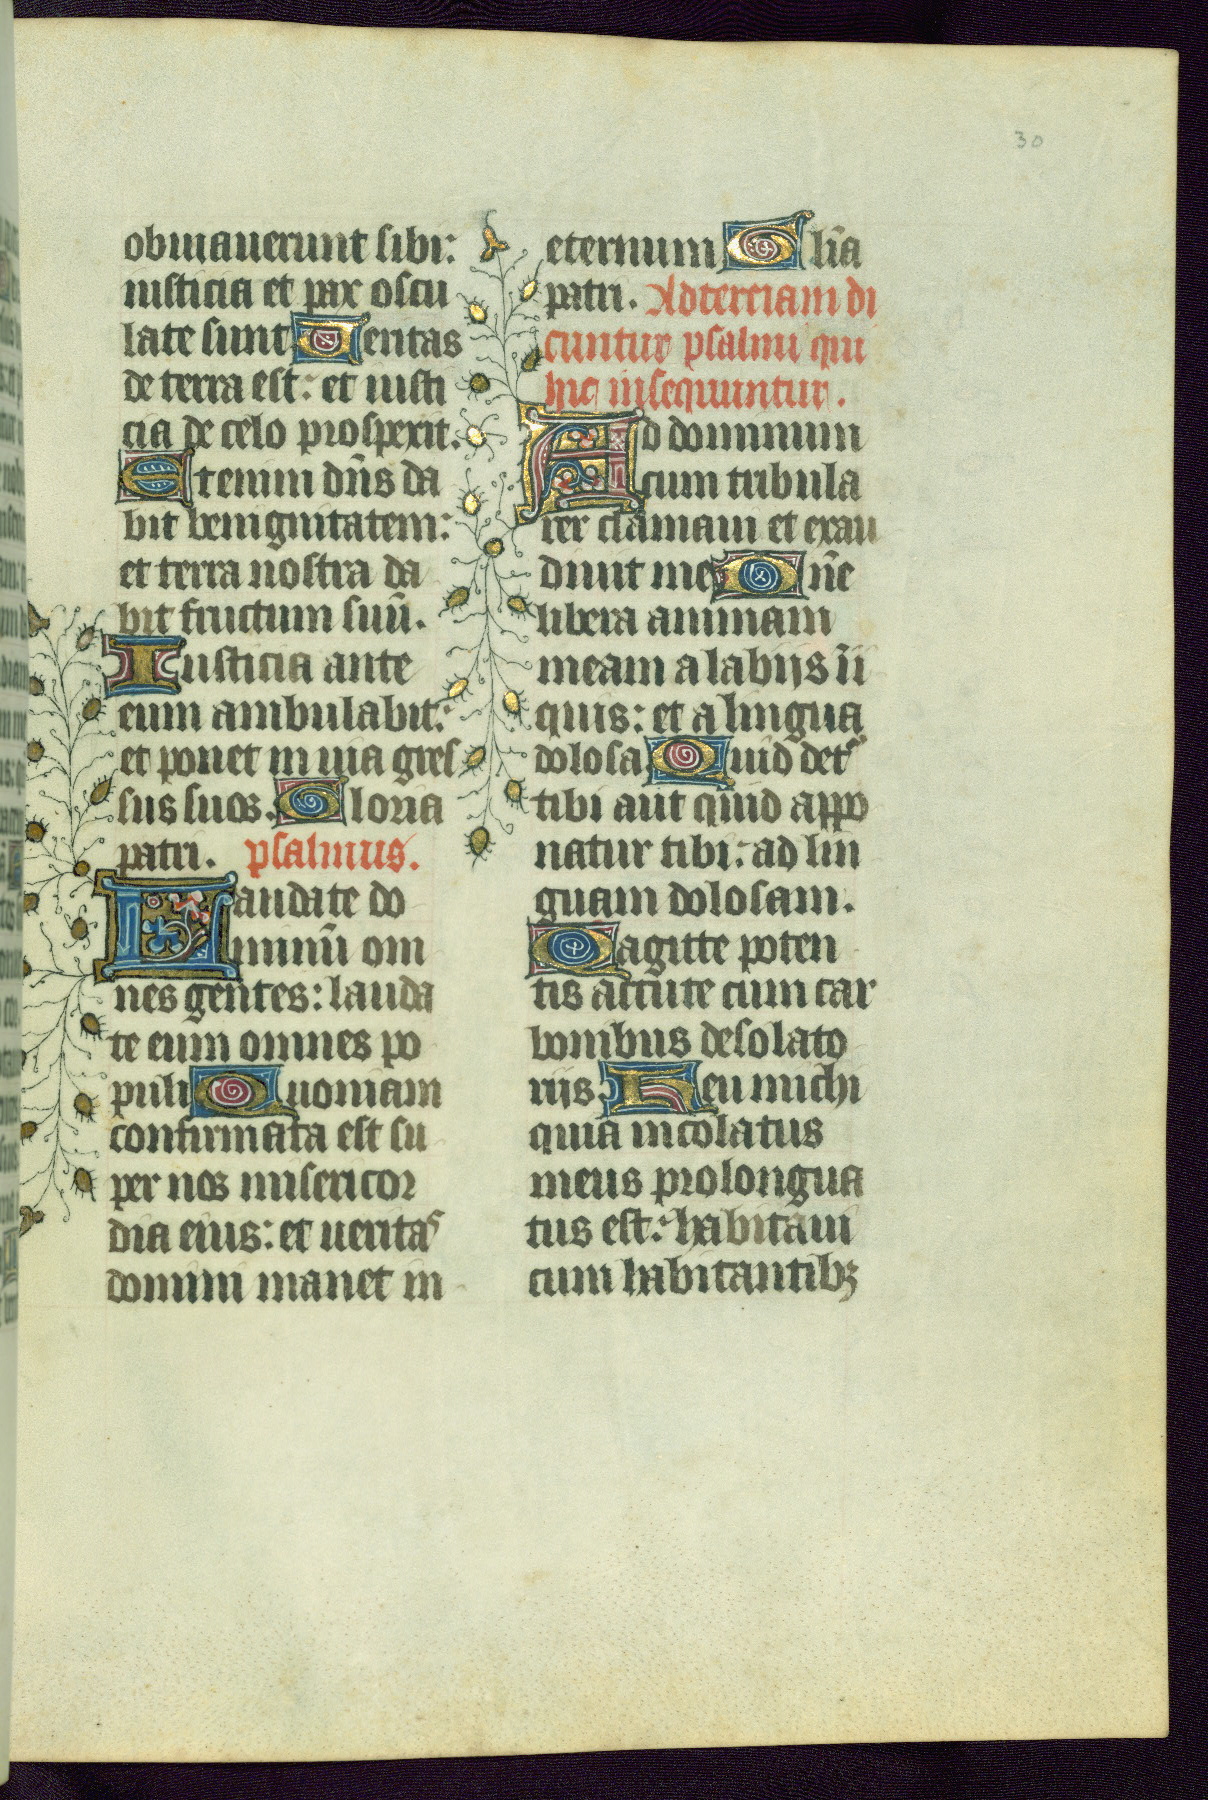 30
obuiauerunt sibi:
iusticia et pax oscu
late sunt Ueritas
de terra est: et iusti
cia de celo prospexit.
Etenim dñs da
bit benignitatem:
et terra nostra da
bit fructum suũ.
Iusticia ante
eum ambulabit:
et ponet in uia gres
sus suos. Gloria
patri. psalmus.
Laudate do
minũ om
nes gentes: lauda
te eum omnes po
puli Quoniam
confirmata est su
per nos misericor
dia eius: et ueritas
domini manet in
eternum Glĩa
patri. Ad terciam di
cuntur psalmi qui
hic insequuntur.
Ad dominum
cum tribula
rer clamaui et exau
diuit me Dñe
libera animam
meam a labijs ĩi
quis: et a lingua
dolosa Quid det͛
tibi aut quid appo
natur tibi: ad lin
guam dolosam.
Sagitte poten
tis accute cum car
bonibus desolato
rijs. Heu michi
quia incolatus
meus prolongua
tus est: habitaui
cum habitantibꝫ